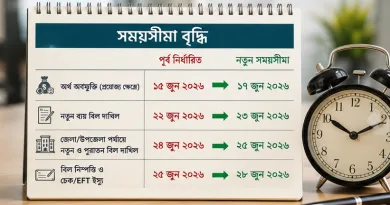 সময়সীমা বৃদ্ধি
পূর্ব নির্ধারিত নতুন সময়সীমা
অর্থ অবমুক্তি (প্রযোজ্য ক্ষেত্রে) ১৫ জুন ২০২৬ ১৭ জুন ২০২৬
নতুন ব্যয় বিল দাখিল ২২ জুন ২০২৬ ২৩ জুন ২০২৬
জেলা/উপজেলা পর্যায়ে
নতুন ও পুরাতন বিল দাখিল ২৪ জুন ২০২৬ ২৫ জুন ২০২৬
বিল নিষ্পত্তি ও
চেক/EFT ইস্যু ২৫ জুন ২০২৬ ২৮ জুন ২০২৬
12
1
2
3
4
5
6
7
8
9
10
11